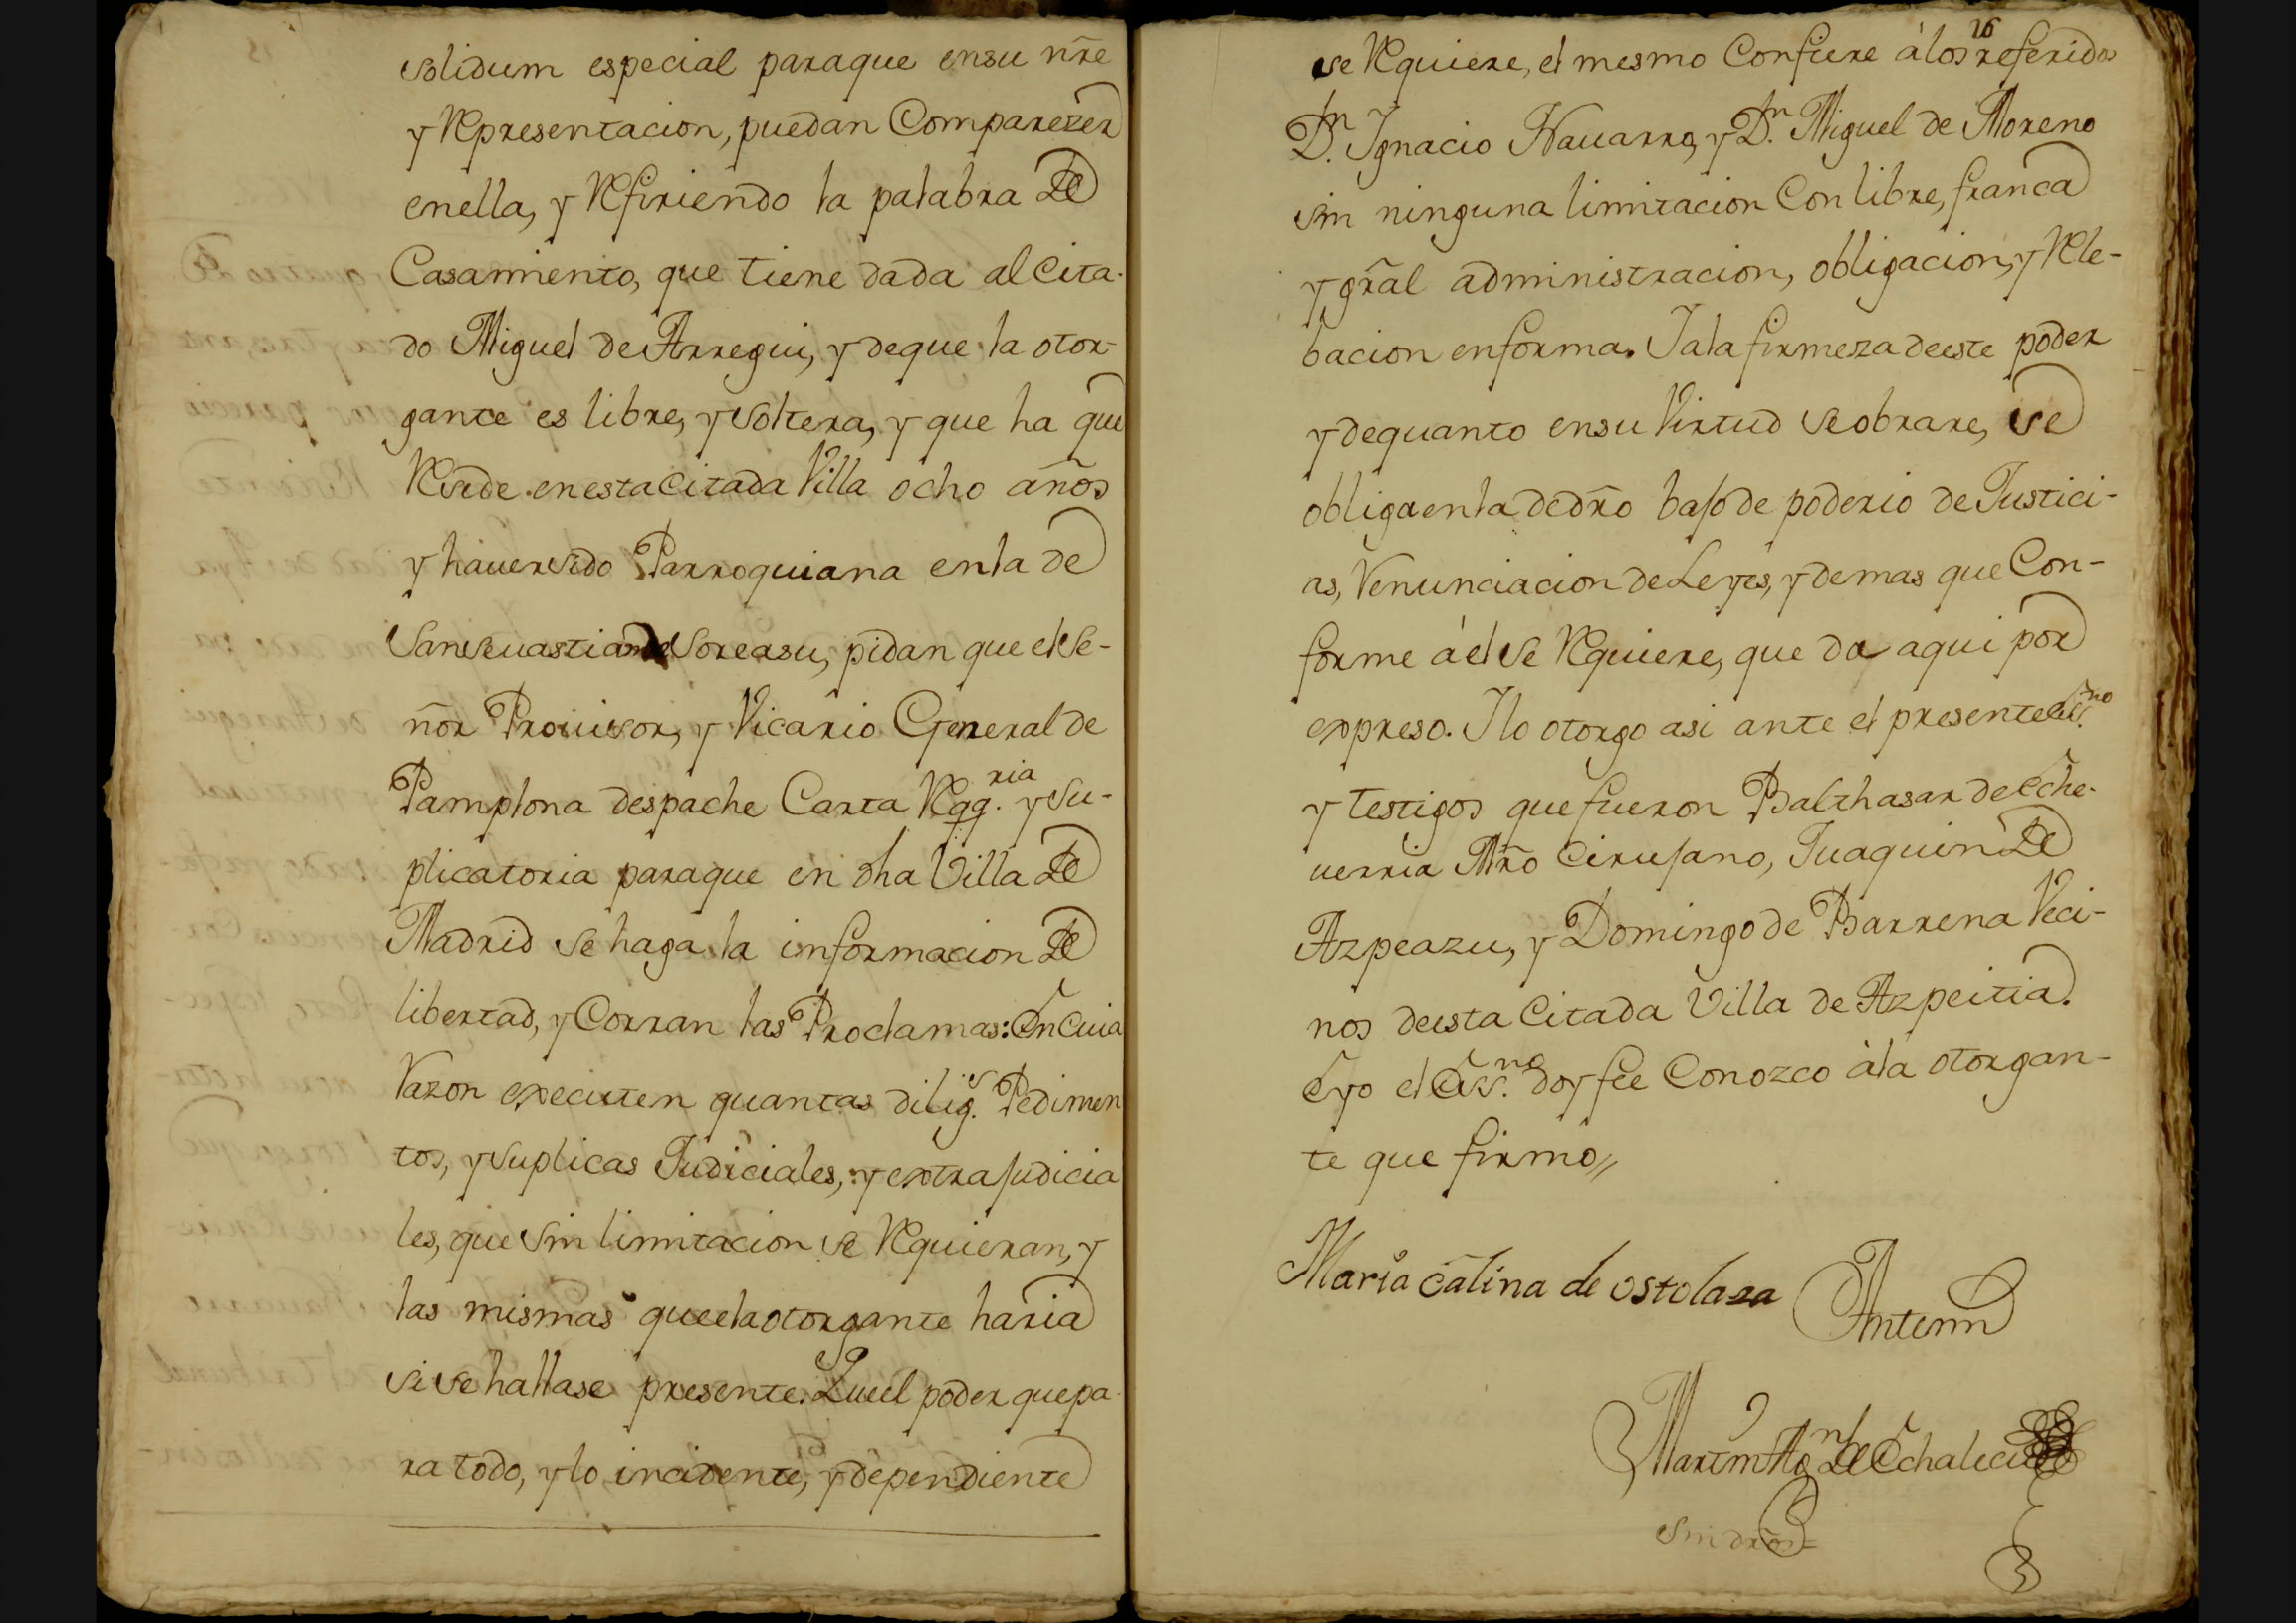 solidum especial paraque ensu nr̃e
y Representacion, puedan Comparezer
enella, y Refiriendo la palabra de
Casamiento, que tiene dada al Cita-
do Miguel de Arregui, y deque la otor-
gante es libre, y soltera, y que ha que
Reside en esta citada Villa ocho años
y hauer sido Parroquiana enla de
San Seuastian de Soreasu, pidan que el Se-
ñor Prouisor, y Vicario General de
Pamplona despache Carta Reqq.ria y Su-
plicatoria paraque en dha Villa de
Madrid se haga la informacion de
libertad, y Corran las Proclamas: En Cuia
Razon executen quantas dilig.s Pedimen
tos, y suplicas Judiciales, y extrajudicia
les, que sin limitacion se Requieran, y
las mismas que la otorgante haria
si se hallase presente. Que el poder que pa-
ra todo, y lo incidente, y dependiente
16
se Requiere, el mesmo Confiere à los referidos
D.n Ignacio Nauarro, y D.n Miguel de Moreno
sin ninguna limitacion Con libre, franca
y gr̃al administracion, obligacion, y Rele-
bacion enforma. I ala firmeza deeste poder
y dequanto ensu Virtud se obrare, se
obliga enla de dr̃o bajo de poderio de Justici-
as, Renunciacion de Leyes, y demas que Con-
forme à el se Requiere, que da aqui por
expreso. I lo otorgo asi ante el presente Ess.no
y testigos que fueron Balthasar de Eche-
uerria Mr̃o Cirujano, Juaquin de
Azpeazu, y Domingo de Barrena Veci-
nos deesta Citada Villa de Azpeitia.
E yo el Ess.no doy fee Conozco àla otorgan-
te que firmo //
Maria Catina de ostolaza
Antemi
Martin Ag.n de Echalecu
Sin dr̃os =